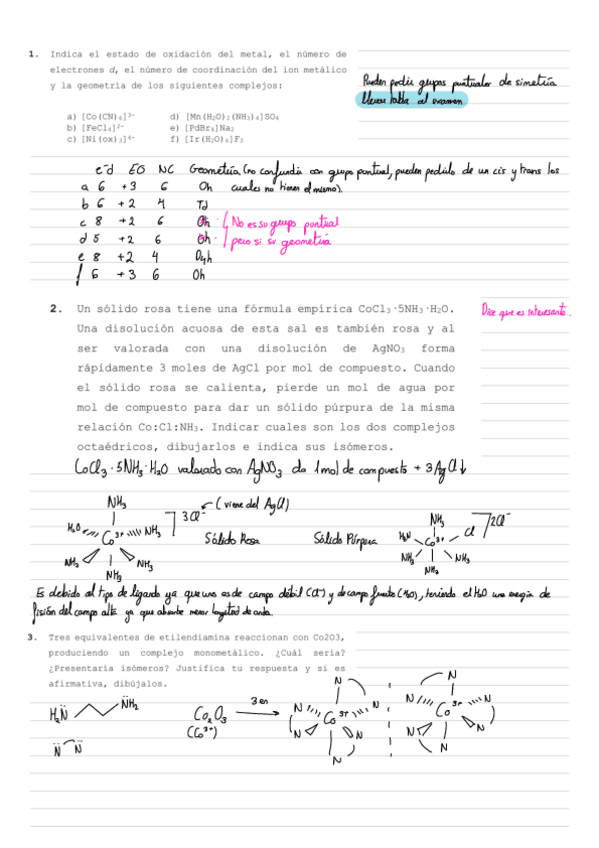 1. Indica el estado de oxidación del metal, el número de
electrones d, el número de coordinación del ion metálico
y la geometría de los siguientes complejos:
Pueden pedir grupos puntuales de simetría
Llevar tabla al examen
a) [Co(CN)₆]³⁻ d) [Mn(H₂O)₂(NH₃)₄]SO₄
b) [FeCl₄]²⁻ e) [PdBr₄]Na₂
c) [Ni(ox)₃]⁴⁻ f) [Ir(H₂O)₆]F₃
e⁻d EO NC Geometría (no confundir con grupo puntual, pueden pedirlo de un cis y trans los
a 6 +3 6 Oh cuales no tienen el mismo).
b 6 +2 4 Td
c 8 +2 6 Oh No es su grupo puntual
d 5 +2 6 Oh pero si su geometría
e 8 +2 4 D4h
f 6 +3 6 Oh
2. Un sólido rosa tiene una fórmula empírica CoCl₃·5NH₃·H₂O.
Dice que es interesante.
Una disolución acuosa de esta sal es también rosa y al
ser valorada con una disolución de AgNO₃ forma
rápidamente 3 moles de AgCl por mol de compuesto. Cuando
el sólido rosa se calienta, pierde un mol de agua por
mol de compuesto para dar un sólido púrpura de la misma
relación Co:Cl:NH₃. Indicar cuales son los dos complejos
octaédricos, dibujarlos e indica sus isómeros.
CoCl₃·5NH₃·H₂O valorado con AgNO₃ da 1mol de compuesto + 3AgCl↓
NH₃ 3Cl⁻ (viene del AgCl) NH₃ 2Cl⁻
H₂O Co³⁺ NH₃ Sólido Rosa Sólido Púrpura H₃N Co³⁺ Cl
NH₃ NH₃ NH₃ NH₃
NH₃ NH₃
Es debido al tipo de ligando ya que uno es de campo débil (Cl⁻) y de campo fuerte (H₂O), teniendo el H₂O una energía de
fisión del campo alta ya que absorbe menor longitud de onda.
3. Tres equivalentes de etilendiamina reaccionan con Co2O3,
produciendo un complejo monometálico. ¿Cuál sería?
¿Presentaría isómeros? Justifica tu respuesta y si es
afirmativa, dibújalos.
N N
H₂N̈ N̈H₂ Co₂O₃ 3 en N Co³⁺ N N Co³⁺ N
(Co³⁺) N N N N
N̈ N̈ N N